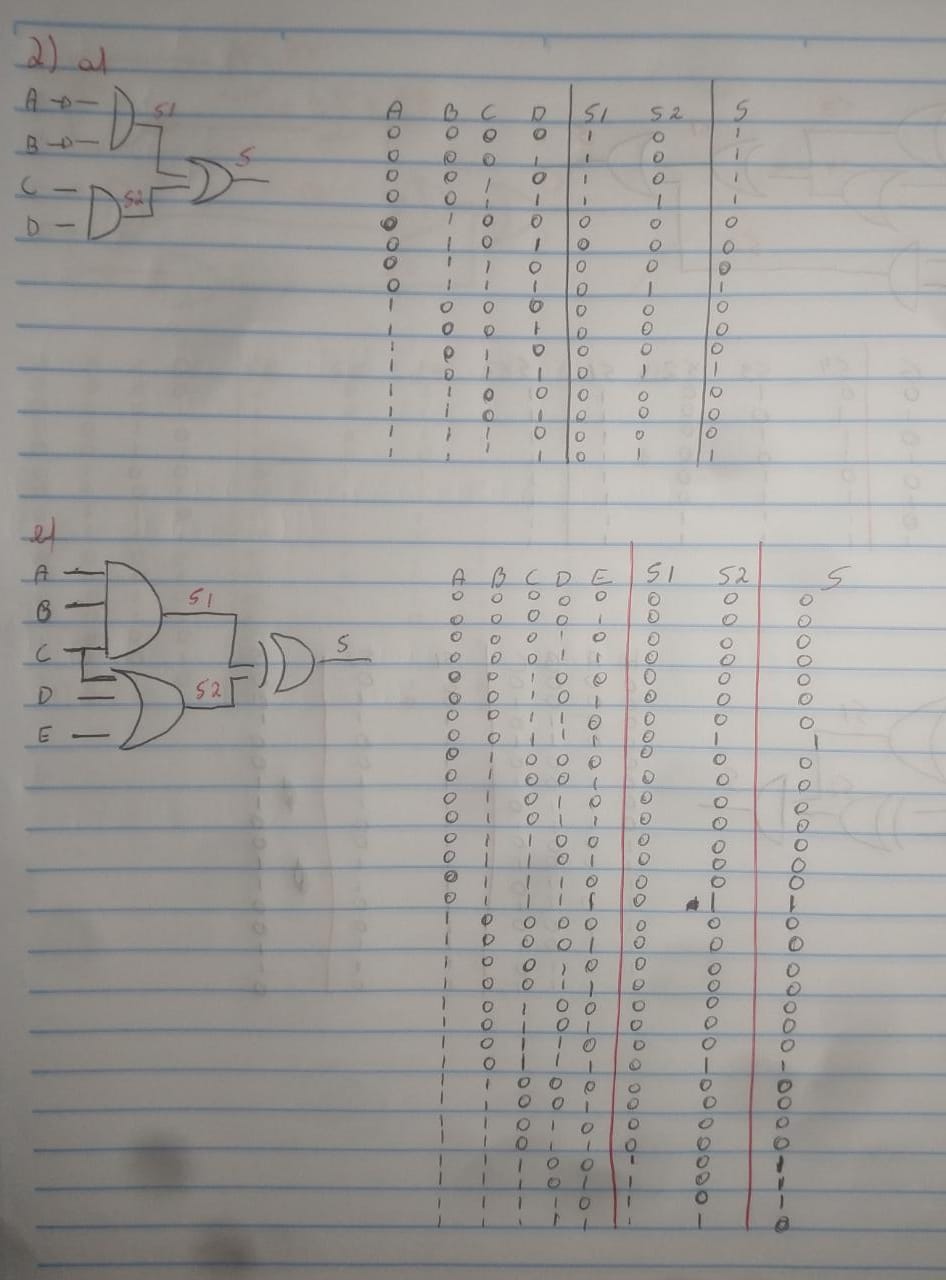 2) a)
A
B
C
D
S1
S2
S
A B C D S1 S2 S
0 0 0 0 1 0 1
0 0 0 1 1 0 1
0 0 1 0 1 0 1
0 0 1 1 1 1 1
0 1 0 0 0 0 0
0 1 0 1 0 0 0
0 1 1 0 0 0 0
0 1 1 1 0 1 1
1 0 0 0 0 0 0
1 0 0 1 0 0 0
1 0 1 0 0 0 0
1 0 1 1 0 1 1
1 1 0 0 0 0 0
1 1 0 1 0 0 0
1 1 1 0 0 0 0
1 1 1 1 0 1 1
e)
A
B
C
D
E
S1
S2
S
A B C D E S1 S2 S
0 0 0 0 0 0 0 0
0 0 0 0 1 0 0 0
0 0 0 1 0 0 0 0
0 0 0 1 1 0 0 0
0 0 1 0 0 0 0 0
0 0 1 0 1 0 0 0
0 0 1 1 0 0 0 0
0 0 1 1 1 0 1 1
0 1 0 0 0 0 0 0
0 1 0 0 1 0 0 0
0 1 0 1 0 0 0 0
0 1 0 1 1 0 0 0
0 1 1 0 0 0 0 0
0 1 1 0 1 0 0 0
0 1 1 1 0 0 0 0
0 1 1 1 1 0 1 1
1 0 0 0 0 0 0 0
1 0 0 0 1 0 0 0
1 0 0 1 0 0 0 0
1 0 0 1 1 0 0 0
1 0 1 0 0 0 0 0
1 0 1 0 1 0 0 0
1 0 1 1 0 0 0 0
1 0 1 1 1 0 1 1
1 1 0 0 0 0 0 0
1 1 0 0 1 0 0 0
1 1 0 1 0 0 0 0
1 1 0 1 1 0 0 0
1 1 1 0 0 1 0 1
1 1 1 0 1 1 0 1
1 1 1 1 0 1 0 1
1 1 1 1 1 1 1 0